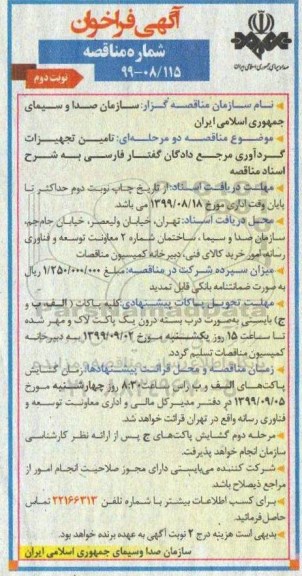 آگهی فراخوان
شماره مناقصه
۹۹-۰۸/۱۱۵
نوبت دوم
صدا و سیمای جمهوری اسلامی ایران
نام سازمان مناقصه گزار: سازمان صدا و سیمای
جمهوری اسلامی ایران
موضوع مناقصه دو مرحله‌ای: تامین تجهیزات
گردآوری مرجع دادگان گفتار فارسی به شرح
اسناد مناقصه
مهلت دریافت اسناد: از تاریخ چاپ نوبت دوم حداکثر تا
پایان وقت اداری مورخ ۱۳۹۹/۰۸/۱۸ می باشد.
محل دریافت اسناد: تهران، خیابان ولیعصر، خیابان جام‌جم،
سازمان صدا و سیما، ساختمان شماره ۲ معاونت توسعه و فناوری
رسانه، امور خرید کالای فنی، دبیرخانه کمیسیون مناقصات
میزان سپرده شرکت در مناقصه: مبلغ ۱/۲۵۰/۰۰۰/۰۰۰ ریال
به صورت ضمانتنامه بانکی قابل تمدید
مهلت تحویل پاکات پیشنهادی: کلیه پاکات (الف، ب و
ج) بایستی به‌صورت درب بسته درون یک پاکت لاک و مهر شده
تا ساعت ۱۵ روز یکشنبه مورخ ۱۳۹۹/۰۹/۰۲ به دبیرخانه
کمیسیون مناقصات تسلیم گردد.
زمان مناقصه و محل قرائت پیشنهادها: زمان گشایش
پاکت‌های الف و ب راس ساعت ۸:۳۰ روز چهارشنبه مورخ
۱۳۹۹/۰۹/۰۵ در دفتر مدیرکل مالی و اداری معاونت توسعه و
فناوری رسانه واقع در تهران قرائت خواهد شد.
مرحله دوم گشایش پاکت‌های ج پس از ارائه نظر کارشناسی
سازمان انجام خواهد پذیرفت.
شرکت کننده می‌بایستی دارای مجوز صلاحیت انجام امور از
مراجع ذیصلاح باشد.
برای کسب اطلاعات بیشتر با شماره تلفن ۲۲۱۶۶۳۱۳ تماس
حاصل فرمائید.
بدیهی است هزینه درج ۲ نوبت آگهی به عهده برنده خواهد بود.
سازمان صدا وسیمای جمهوری اسلامی ایران